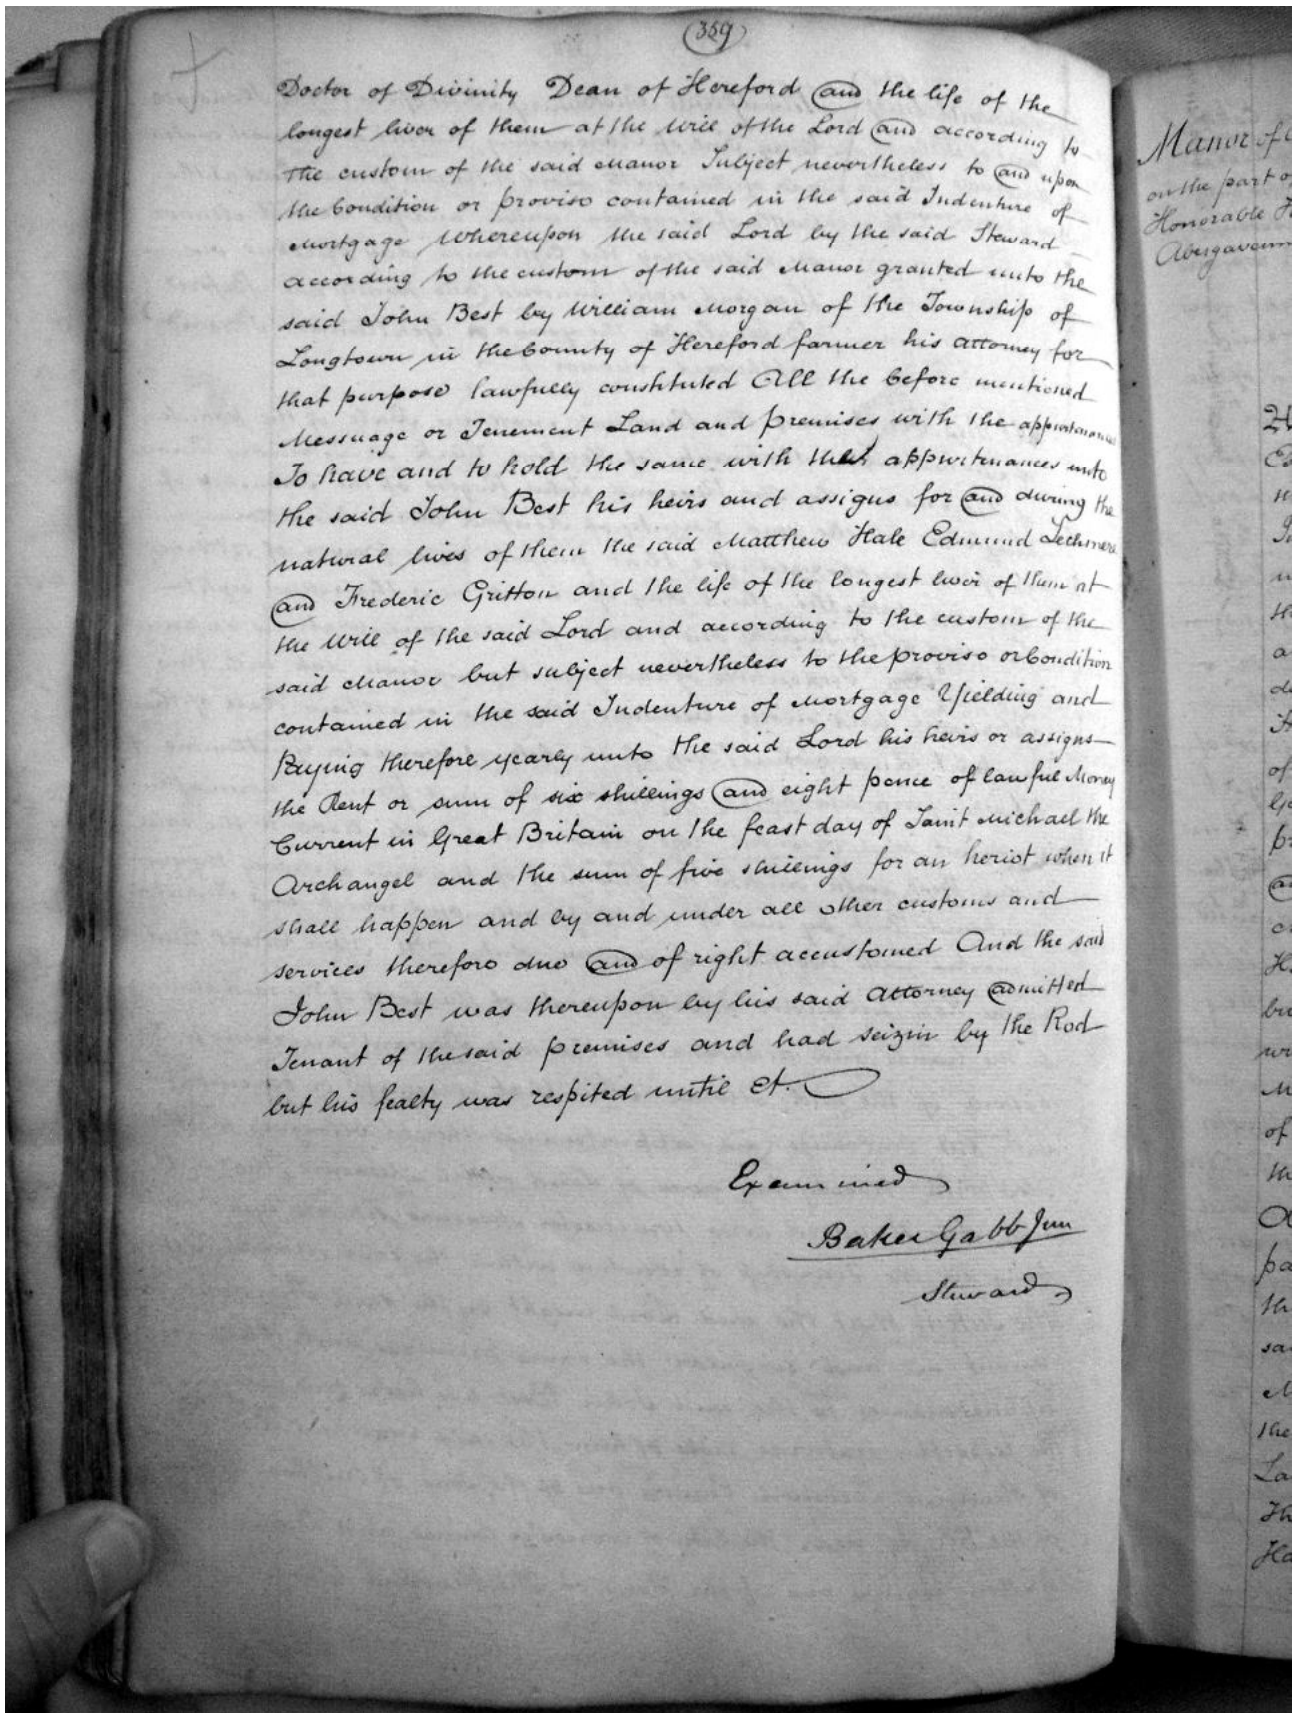 359
Doctor of Divinity Dean of Hereford and the life of the
longest liver of them at the will of the Lord and according to
the custom of the said Manor Subject nevertheless to and upon
the Condition or proviso contained in the said Indenture of
Mortgage Whereupon the said Lord by the said Steward
according to the custom of the said Manor granted unto the
said John Best by William Morgan of the Township of
Longtown in the County of Hereford farmer his attorney for
that purpose lawfully constituted All the before mentioned
Messuage or Tenement Land and premises with the appurtenances
To have and to hold the same with their appurtenances unto
the said John Best his heirs and assigns for and during the
natural lives of them the said Matthew Hale Edmund Lechmere
and Frederic Gritton and the life of the longest liver of them at
the will of the said Lord and according to the custom of the
said Manor but subject nevertheless to the proviso or Condition
contained in the said Indenture of Mortgage Yielding and
Paying therefore yearly unto the said Lord his heirs or assigns
the Rent or sum of six shillings and eight pence of lawful Money
Current in Great Britain on the feast day of Saint Michael the
Archangel and the sum of five shillings for an heriot when it
shall happen and by and under all other customs and
services therefore due and of right accustomed And the said
John Best was thereupon by his said attorney admitted
Tenant of the said premises and had seizin by the Rod
but his fealty was respited until et.
Examined
Baker Gabb Jun
Steward
Manor of
on the part of
Honorable